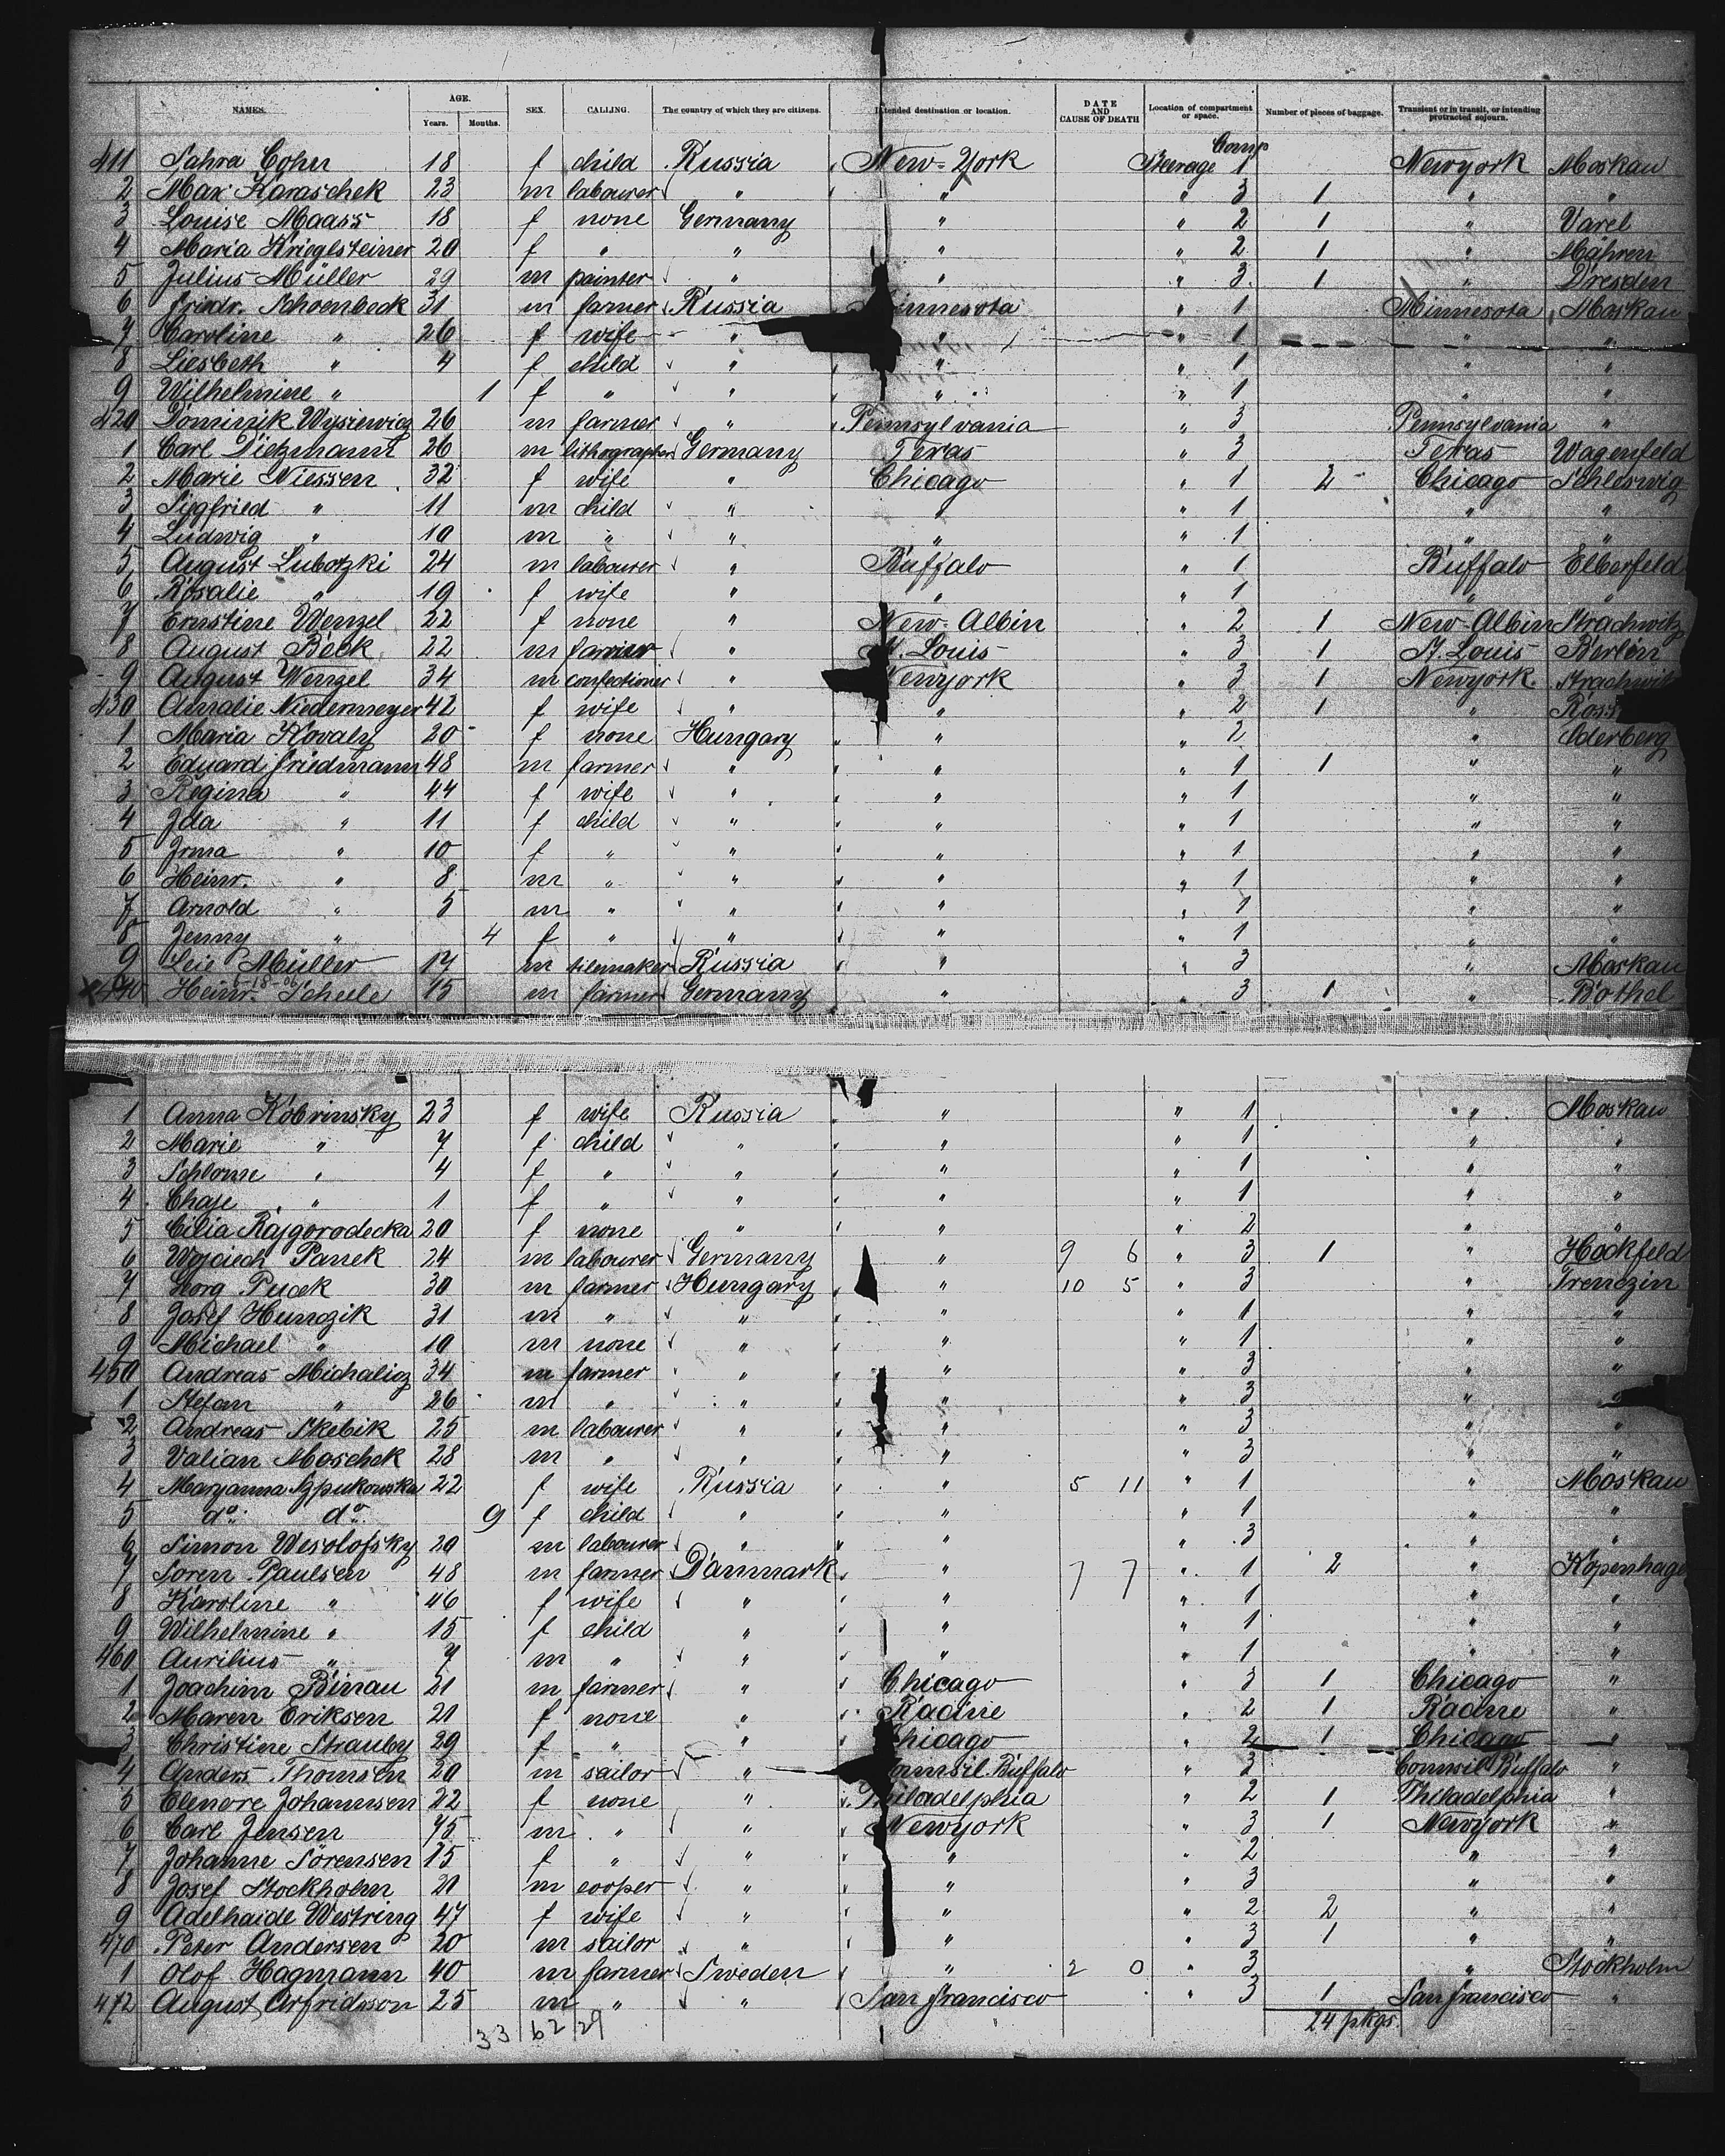 NAMES. AGE. Years. Months. SEX. CALLING. The country of which they are citizens. Intended destination or location. DATE AND CAUSE OF DEATH Location of compartment or space. Number of pieces of baggage. Transient or in transit, or intending protracted sojourn.
Comp
411 Sahra Cohn 18 f child Russia New-York Steerage 1 Newyork Moskau
2 Max Karaschek 23 m labourer " " " 3 1 " "
3 Louise Maass 18 f none Germany " " 2 1 " Varel
4 Maria Krieglsteiner 20 f " " " " 2 1 " Mähren
5 Julius Müller 29 m painter " " " 3 1 " Dresden
6 Friedr. Schoenbeck 31 m farmer Russia Minnesota " 1 Minnesota Moskau
7 Caroline " 26 f wife " " " 1 " "
8 Liesbeth " 4 f child " " " 1 " "
9 Wilhelmine " 1 f " " " " 1 " "
420 Dominik Wysiewicz 26 m farmer " Pennsylvania " 3 Pennsylvania "
1 Carl Dietzmann 26 m lithographer Germany Texas " 3 Texas Wagenfeld
2 Marie Niessen 32 f wife " Chicago " 1 2 Chicago Schleswig
3 Sigfried " 11 m child " " " 1 " "
4 Ludwig " 10 m " " " " 1 " "
5 August Lubotzki 24 m labourer " Buffalo " 1 Buffalo Elberfeld
6 Rosalie " 19 f wife " " " 1 " "
7 Ernstine Wenzel 22 f none " New-Albin " 2 1 New-Albin Strachwitz
8 August Beck 22 m farmer " St. Louis " 3 1 St. Louis Berlin
9 August Wenzel 34 m confectioner " Newyork " 3 1 Newyork Strachwitz
430 Amalie Niedermeyer 42 f wife " " " 2 1 " Ross
1 Maria Kovaly 20 f none Hungary " " 2 " Oderberg
2 Eduard Friedmann 48 m farmer " " " 1 1 " "
3 Regina " 44 f wife " " " 1 " "
4 Ida " 11 f child " " " 1 " "
5 Irma " 10 f " " " " 1 " "
6 Heinr. " 8 m " " " " 1 " "
7 Arnold " 5 m " " " " 1 " "
8 Jenny " 4 f " " " " 1 " "
9 Leie Müller 17 m tilemaker Russia " " 3 " Moskau
x 440 Heinr. Scheele 15 m farmer Germany " " 3 1 " Bothel
1 Anna Kobrinsky 23 f wife Russia " " 1 " Moskau
2 Marie " 7 f child " " " 1 " "
3 Schlome " 4 f " " " " 1 " "
4 Chaje " 1 f " " " " 1 " "
5 Cilia Rajgorodecka 20 f none " " " 2 " "
6 Wojciech Panek 24 m labourer Germany " 9 6 " 3 1 " Hockfeld
7 Georg Pucek 30 m farmer Hungary " 10 5 " 3 " Trenczin
8 Josef Hunczik 31 m " " " " 1 " "
9 Michael " 10 m none " " " 1 " "
450 Andreas Michalicz 34 m farmer " " " 3 " "
1 Stefan " 26 m " " " " 3 " "
2 Andreas Skebik 25 m labourer " " " 3 " "
3 Valian Moschek 28 m " " " " 3 " "
4 Maryanna Szpukowska 22 f wife Russia " 5 11 " 1 " Moskau
5 do. do. 9 f child " " " 1 " "
6 Simon Wesolofsky 20 m labourer " " " 3 " "
7 Soren Paulsen 48 m farmer Danmark " 7 7 " 1 2 " Kopenhage
8 Karoline " 46 f wife " " " 1 " "
9 Wilhelmine " 15 f child " " " 1 " "
460 Aurilius " 7 m " " " " 1 " "
1 Joachim Binau 21 m farmer " Chicago " 3 1 Chicago "
2 Maren Eriksen 21 f none " Racine " 2 1 Racine "
3 Christine Strauby 29 f " " Chicago " 2 1 Chicago "
4 Anders Thomsen 20 m sailor " Counsil Buffalo " 3 Counsil Buffalo "
5 Elenore Johannsen 22 f none " Philadelphia " 2 1 Philadelphia "
6 Carl Jensen 75 m " " Newyork " 3 1 Newyork "
7 Johanne Sörensen 15 f " " " " 2 " "
8 Josef Stockholm 21 m cooper " " " 3 " "
9 Adelhaide Westring 47 f wife " " " 2 2 " "
470 Peter Andersen 20 m sailor " " " 3 1 " "
1 Olof Hagmann 40 m farmer Sweden " 2 0 " 3 " Stockholm
472 August Arfridsson 25 m " " San Francisco " 3 1 San Francisco "
33 62 29 24 pkgs.